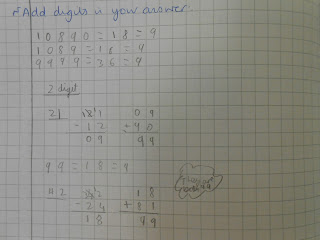 Add digits in your answer.
10890 = 18 = 9
1089 = 18 = 9
9999 = 36 = 9
2 digit
21 09
- 12 + 90
09 99
99 = 18 = 9
42 18
- 24 + 81
18 99